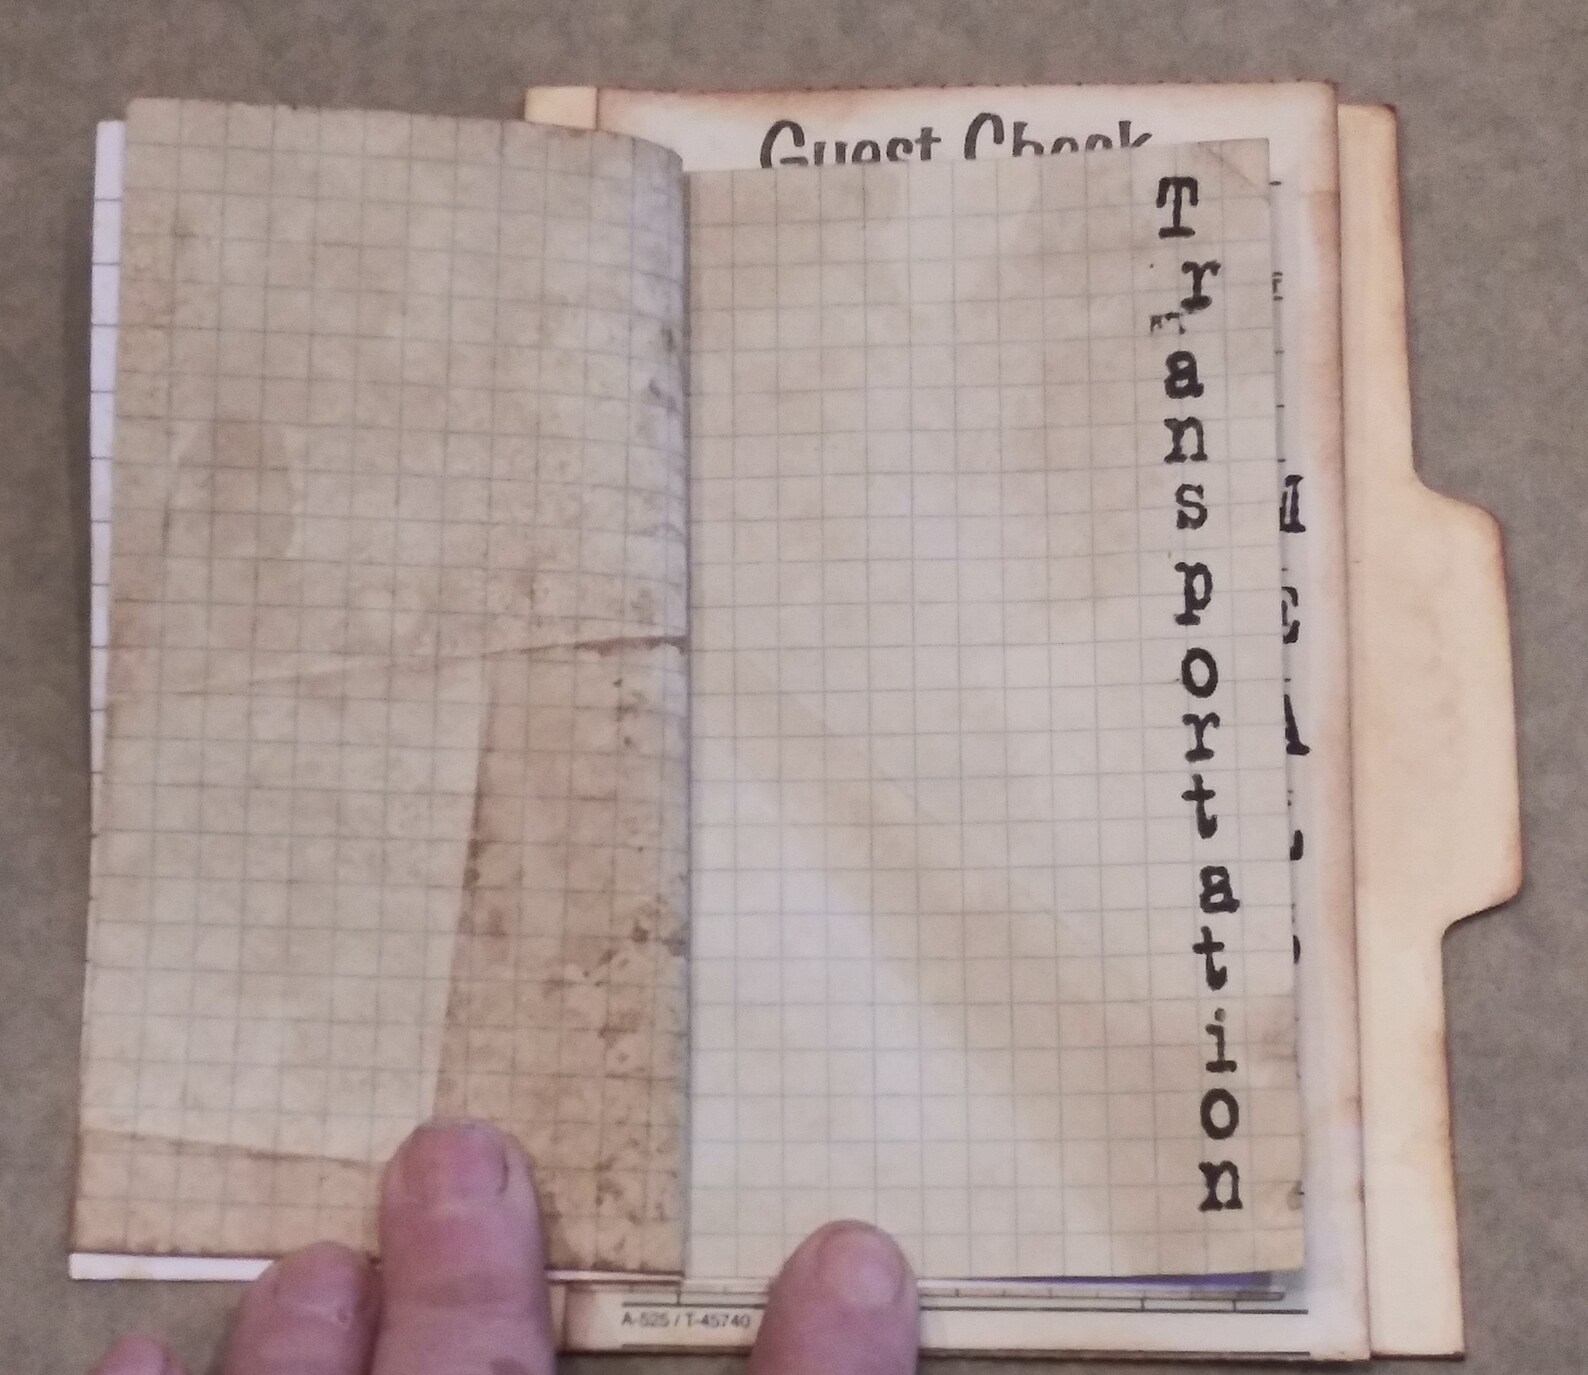 Guest Check
Transportation
A-525 / T-45740